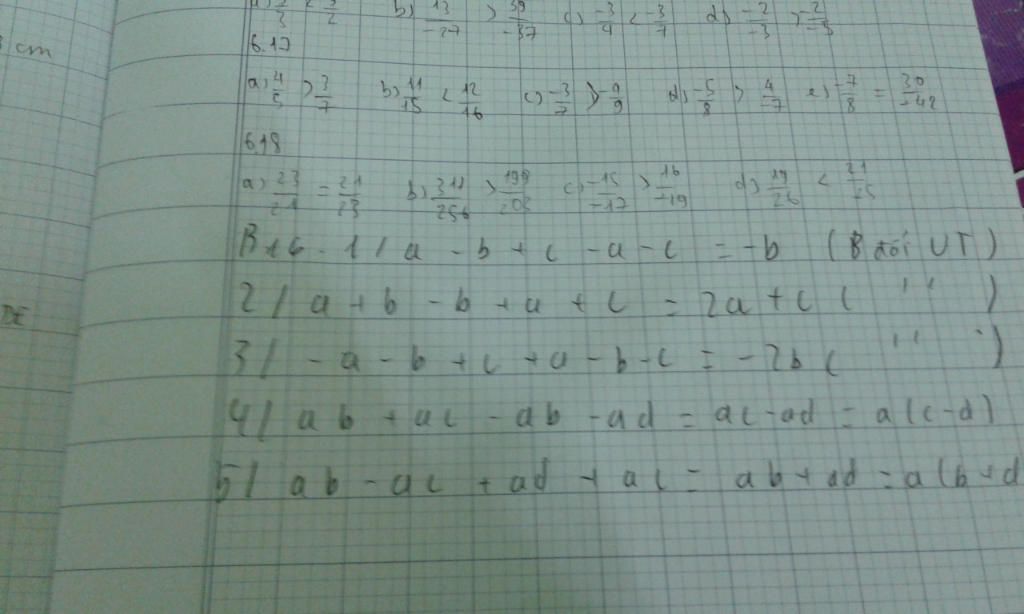 b) 13/-27 > 39/-37 c) -3/4 < 3/7 d) -2/-3 > -2/-5
6.17
a) 4/5 > 3/7 b) 11/15 < 12/16 c) -3/7 > -9/9 d) -5/8 > 4/-7 e) -7/8 = 30/-42
6.18
a) 23/21 = 21/23 b) 311/256 > 199/203 c) -15/-17 > 16/-19 d) 19/26 < 21/25
B16. 1/ a - b + c - a - c = -b (B đổi VT)
2/ a + b - b + a + c = 2a + c ( '' )
3/ - a - b + c + a - b - c = - 2b ( '' )
4/ ab + ac - ab - ad = ac - ad = a(c-d)
5/ ab - ac + ad + ac = ab + ad = a(b+d